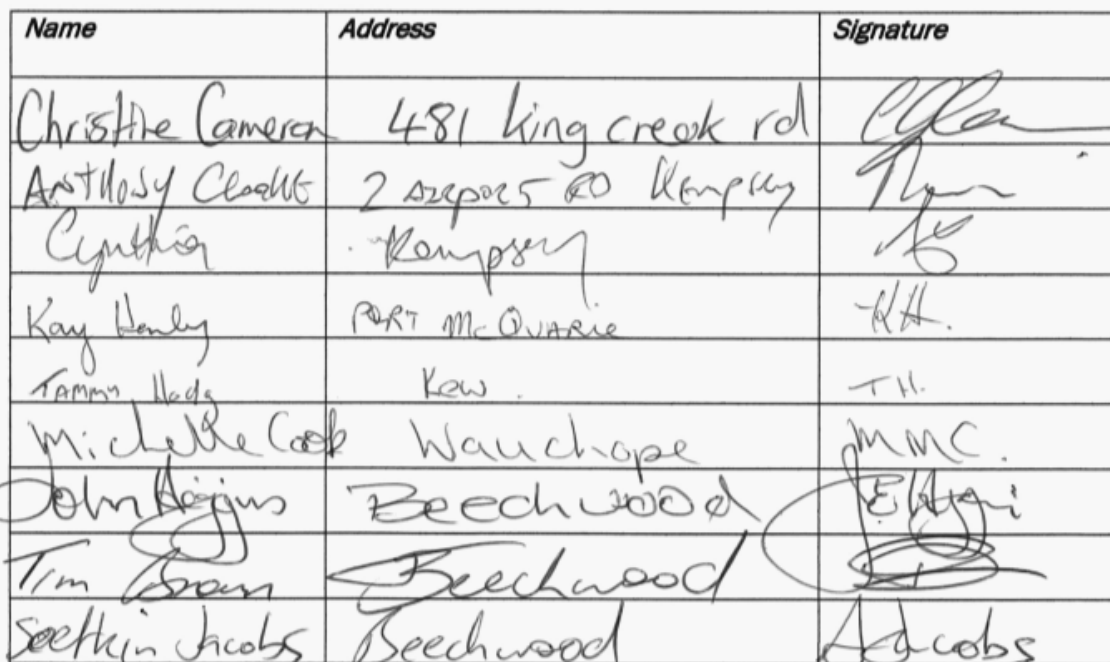 Name Address Signature
Christine Cameron 481 king creek rd
ANTHONY 2 RD Kempsey
Cynthia Kempsey
Kay Henly PORT McQUARIE KH.
TAMMY Kew. TH.
Michelle Cook Wauchope MMC.
John Higgins Beechwood
Tim Brown Beechwood
Seethin Jacobs Beechwood AJacobs